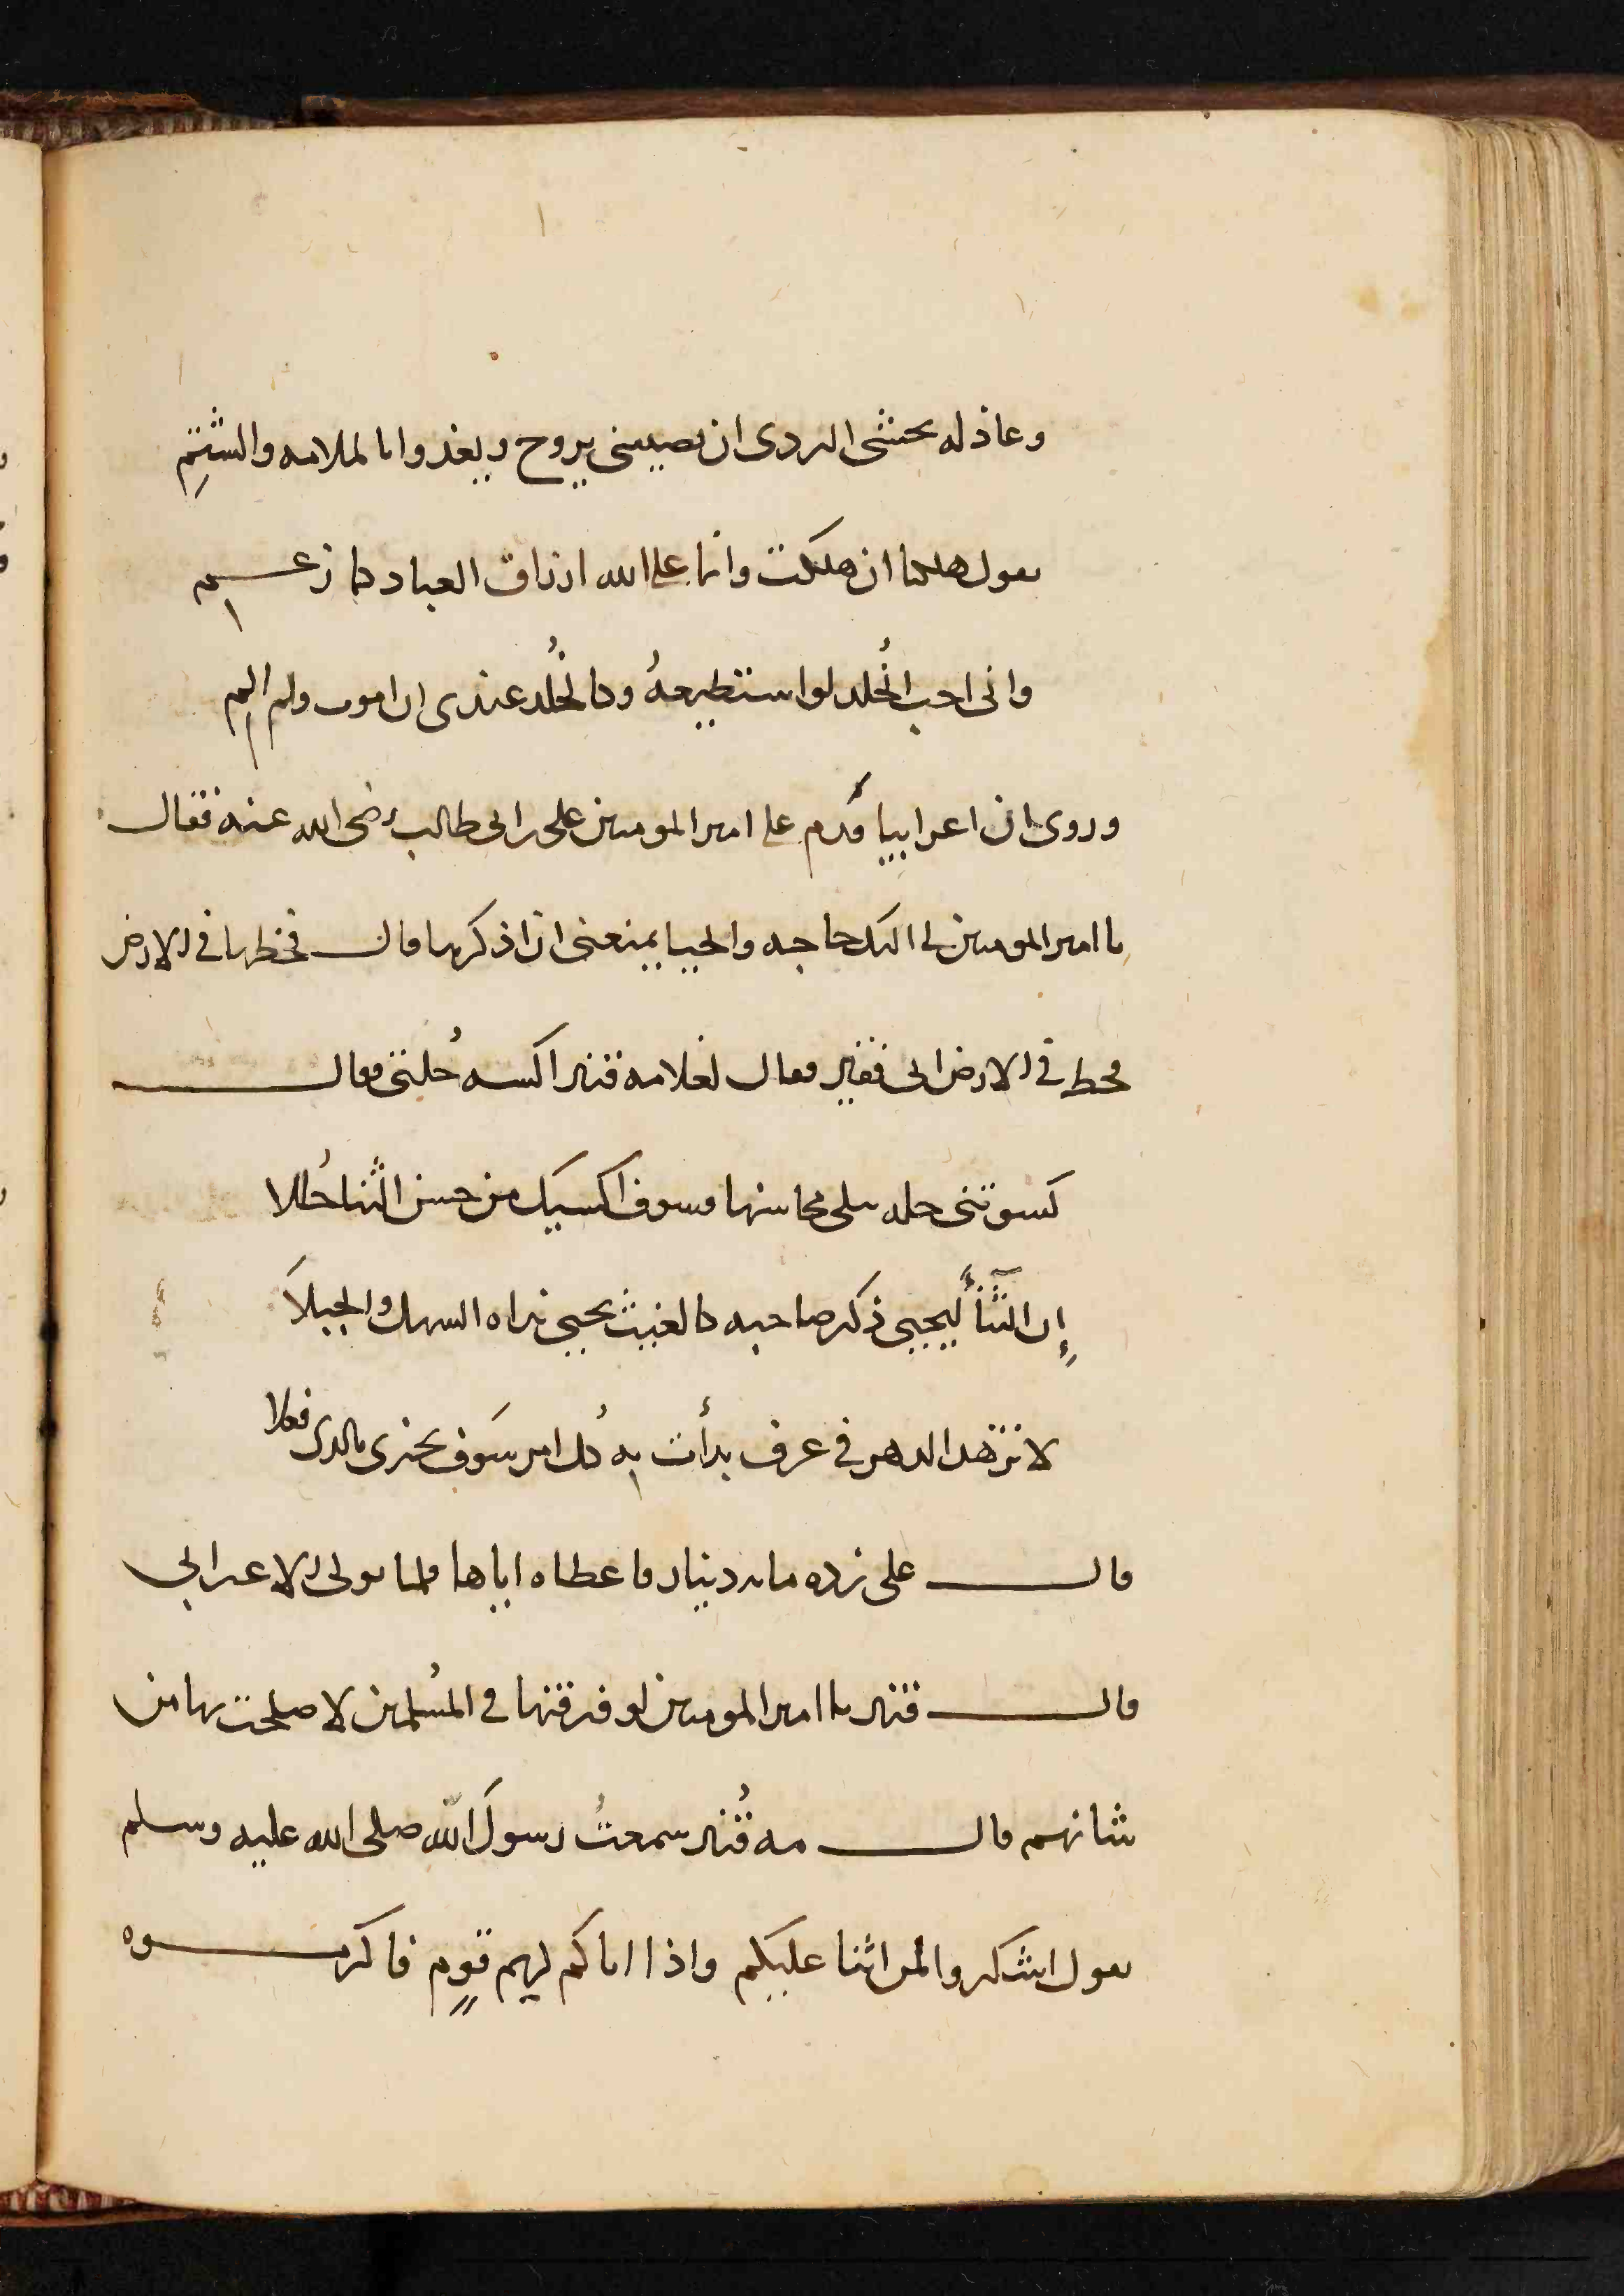 وعاذله تخشى الردى ان يصيبنى يروح ويغدوا بالملامه والشتمِ
يقول هلكنا ان هلكت وانما على الله ارزاق العباد كما زعم
وانى احب الخُلد لو استطيعهُ وكالخُلد عندى ان اموت ولم المِ
وروى ان اعرابيا قَدم على امير المومنين على بن ابى طالب رضى الله عنه فقال
يا امير المومنين لى اليك حاجه والحيا يمنعنى ان اذكرها قال فخطها فى الارض
فخط فى الارض انى فقير فقال لغلامه قنبر اكسه حُلتى فقال
كسوتنى حله تبلى محاسنها وسوف اكسيك من حسن الثَّنا حُللا
إن الثَّنآ ليُحيى ذكر صاحبه كالغيث يحيى نداه السهل والجبلاَ
لا تزهد الدهر فى عرف بدأت به كُل امر سَوف يجزى بالذى فعلا
قال على زده مايه دينار فاعطاه اياها فلما تولى الاعرابى
قال قنبر يا امير المومنين لو فرقتها فى المُسلمين لاصلحت بها من
شانهم قال مه قُنبر سمعتُ رسولَ اللّه صلى الله عليه وسلم
يقول اشكروا لمن اثنا عليكم واذا اتاكم كريم قومٍ فاكرموه